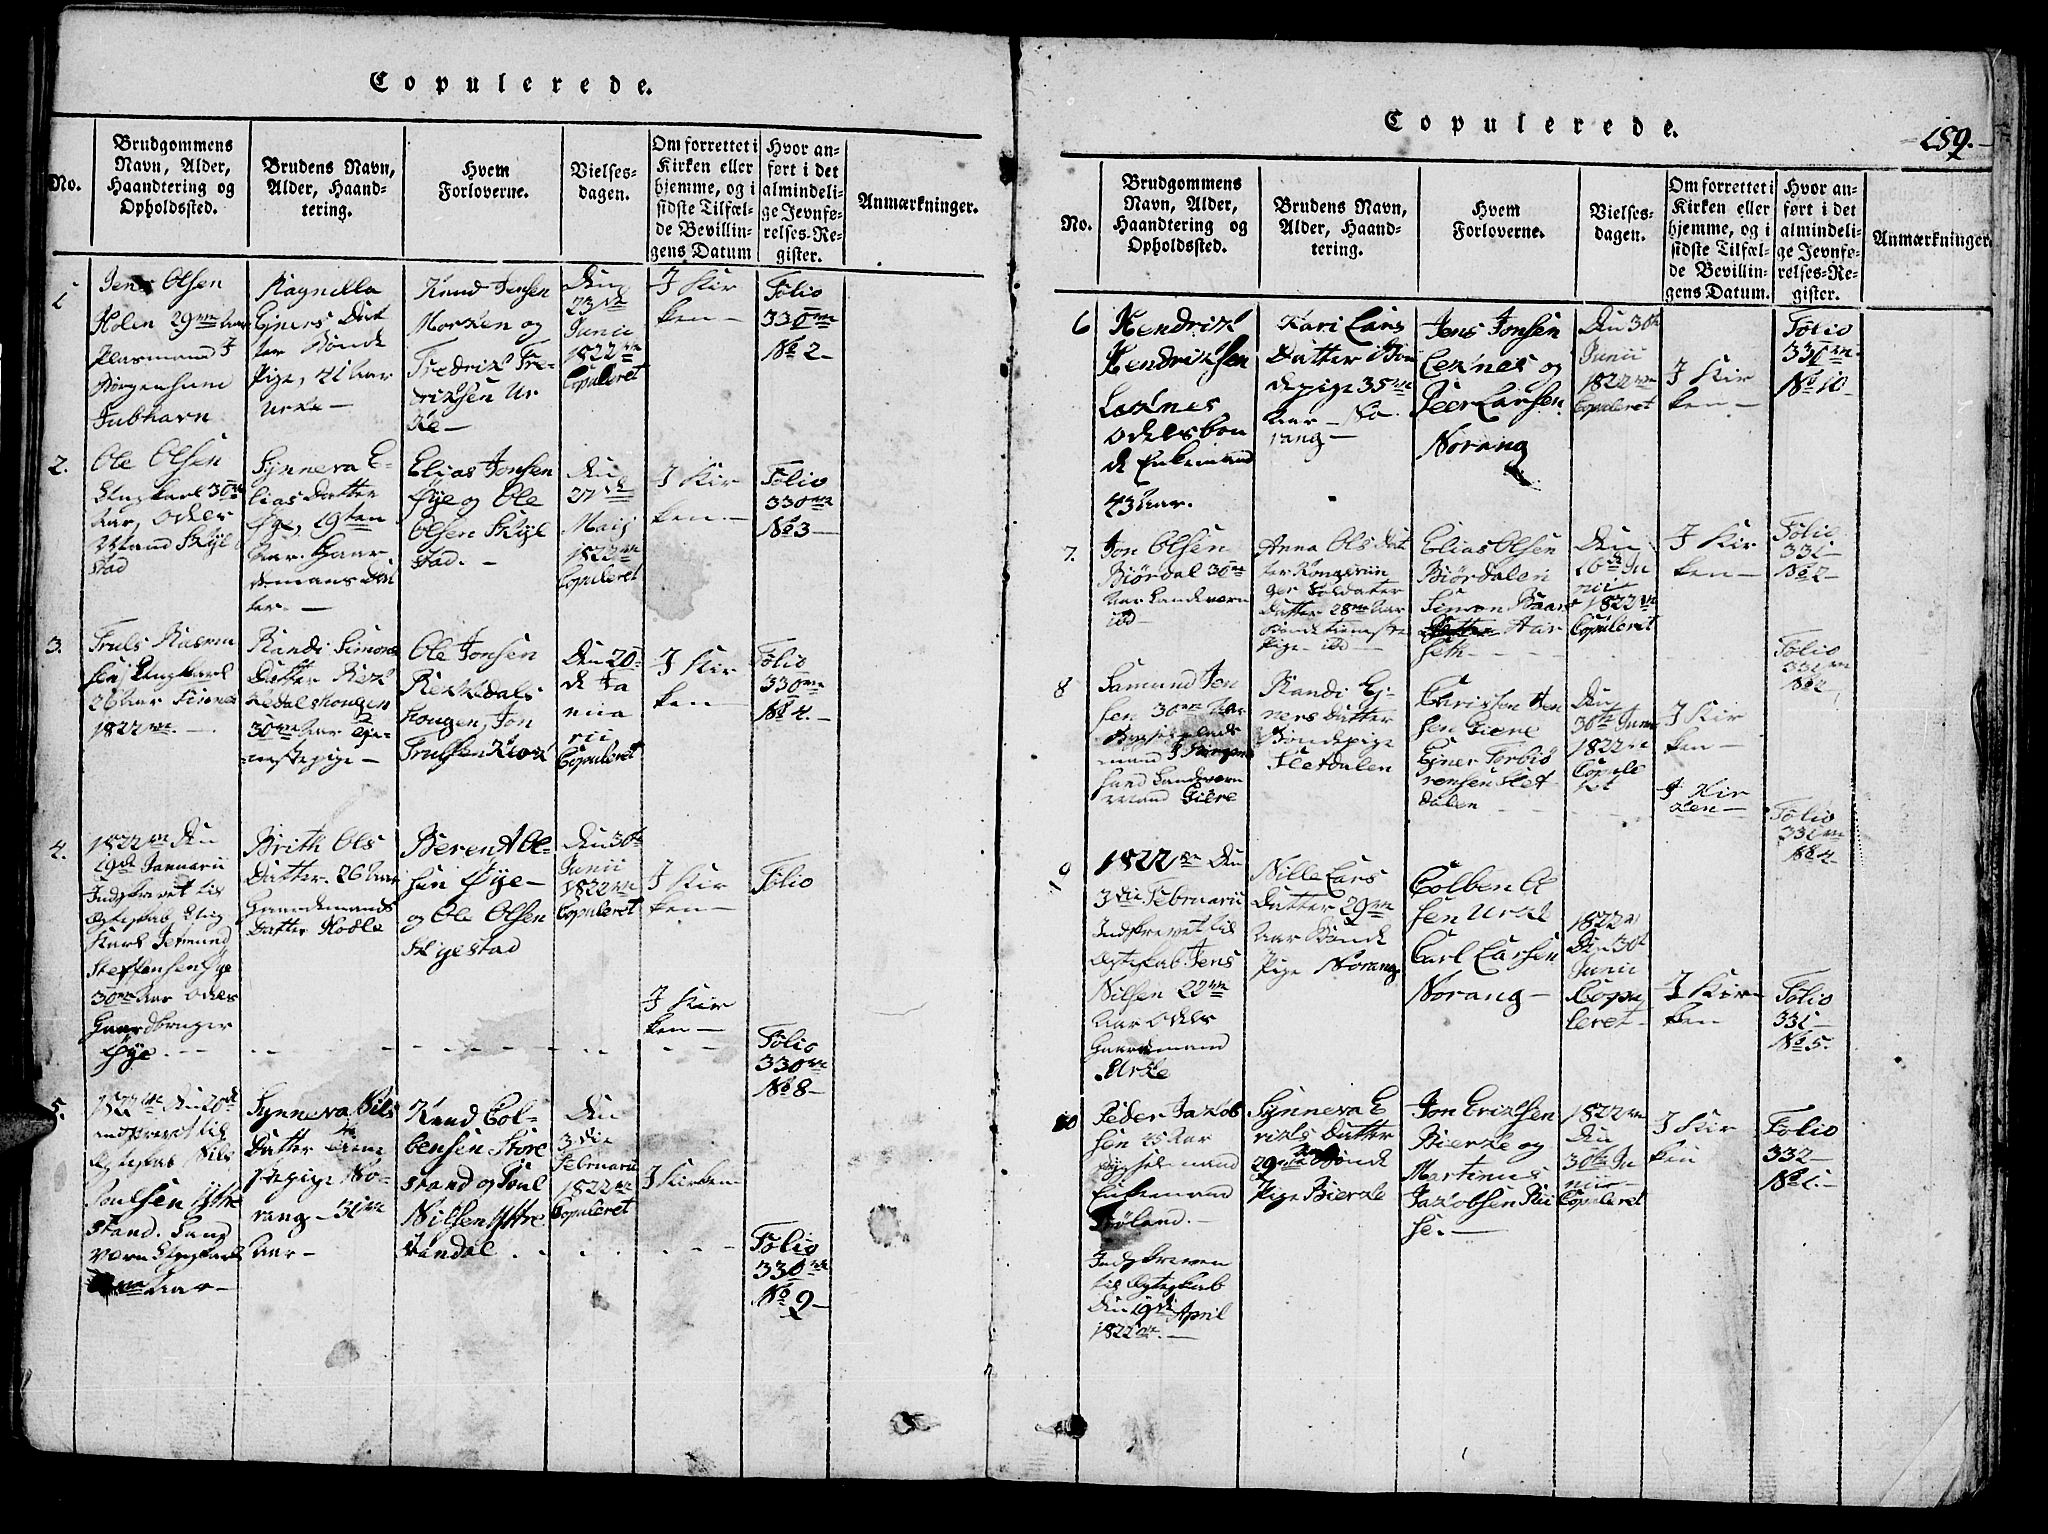 Copulerede.
No.
Brudgommens
Navn, Alder,
Haandtering og
Opholdssted.
Brudens Navn,
Alder, Haand-
tering.
Hvem
Forloverne.
Vielses-
dagen.
Om forrettet i
Kirken eller
hjemme, og i
sidste Tilfæl-
de Bevillin-
gens Datum
Hvor an-
ført i det
almindeli-
ge Jevnfø-
relses-Re-
gister.
Anmærkninger.
1
Jens Olsen
Holen 29
Ragnilla
Ejners Dat
ter Bonde
Pige, 41 Aar
Urke
Knud Jensen
Morken og
Fredrik Fre-
driksen Ur
ke
Den
23
Junii
1822
Copuleret
J Kir
ken
Folio
330
No 2
2.
Ole Olsen
Ungkarl 30
Aar, Odels
Mand Skyl
stad
Synneva E-
lias Datter
Øye, 19ten
Aar. Gaar
demans Dat
ter.
Elias Jonsen
Øye og Ole
Olsen Skyl
stad.
Den
27
Maij
1822
Copuleret
J Kir
ken
Folio
330
No 3
3.
Truls Rasmu
sen, Ungkarl
26 Aar
1822
Randi Simons
Datter
30 Aar tje-
nestepige
Ole Jonsen
Rekkedals
hougen, Jon
Trulsen
Den 20
de Ja
nua
rii
Copuleret
J Kir
ken
Folio
330
No 4
4.
1822 Den
19de Januarii
Indskrevet til
Ægteskab Ung
Karl Jetmund
Steffensen Øye
30 Aar Odels
Gaardbruger
Øye
Brith Ols
Datter. 26 Aar
Gaardemands
Datter
Berent Ole
sen Øye
og Ole Olsen
Skylestad
Den 30te
Junii
1822
Copuleret
J Kir
ken
Folio
J Kir
ken
Folio
330
No 8
5.
1822 Den 20de
indskrevet til
Ægteskab Nils
Poulsen Ytre
stand. Land
værn Ungkarl
Aar
Synneva Nils
Datter Tiene
stepige No-
rang 31
Aar
Knud Col-
bensen Store
stand og Poul
Nilsen Ytre
Den
3die
Februarii
1822
Copuleret
J Kirken
Folio
330
No 9
Copulerede.
159.
No.
Brudgommens
Navn, Alder,
Haandtering og
Opholdssted.
Brudens Navn,
Alder, Haand-
tering.
Hvem
Forloverne.
Vielses-
dagen.
Om forrettet i
Kirken eller
hjemme, og i
sidste Tilfæl-
de Bevillin-
gens Datum.
Hvor an-
ført i det
almindeli-
ge Jevnfø-
relses-Re-
gister.
Anmærkninger.
6
Hendrik
Hendriksen
Leknes
Odelsbon
de Enkemand
43 Aar.
Kari Lars
Datter Bon
depige 35
Aar No
rang
Jens Jonsen
Leknes og
Peer Larsen
Norang
Den 30te
Junii
1822
Copuleret
J Kir
ken
Folio
330
No 10
7.
Jon Olsen
Biørdal 30
Aar Landværn
Anna Ols Dat
ter
Soldater
Datter 28 Aar
Pige
Elias Olsen
Biørdalen
Simon
Aar
seth
Den
16de Ju
nii
1822
Copuleret
J Kir
ken
Folio
331
No 2
8
Samund Jen
sen 30 Aar
mand
Landværn
Mand Giere
Randi Ej-
ners Datter
Bondepige
Sletdalen
Jen
sen Giere
Ejner Torbiø
rensen Slet
dalen
Den
30te Juni
1822
Copule
ret
J Kir
ken
Folio
331
No 2
J Kir
ken
Folio
331
No 4
9
1822 Den
3die Februarii
Indskrevet til
Ægteskab Jens
Nilsen 22
Aar Odels
Gaardmand
Urke
Nille Lars
Datter 29
Aar Bonde
Pige Norang
Colben O
sen Urke
Carl Larsen
Norang
1822
Den 30te
Junii
Copu
leret
J Kir
ken
Folio
331
No 5
10
Peder Jakob
sen 25 Aar
Bygselmand
Enkemand
Indskreven
til Ægteskab
Den 19de April
1822
Synneva E
riks Datter
29 Bonde
Pige Bierke
Jon Eriksen
Bierke og
Martinus
Jakobsen Rii
se.
1822
Den
30te Ju
nii
Copuleret
J Kir
ken
Folio
332
No 1